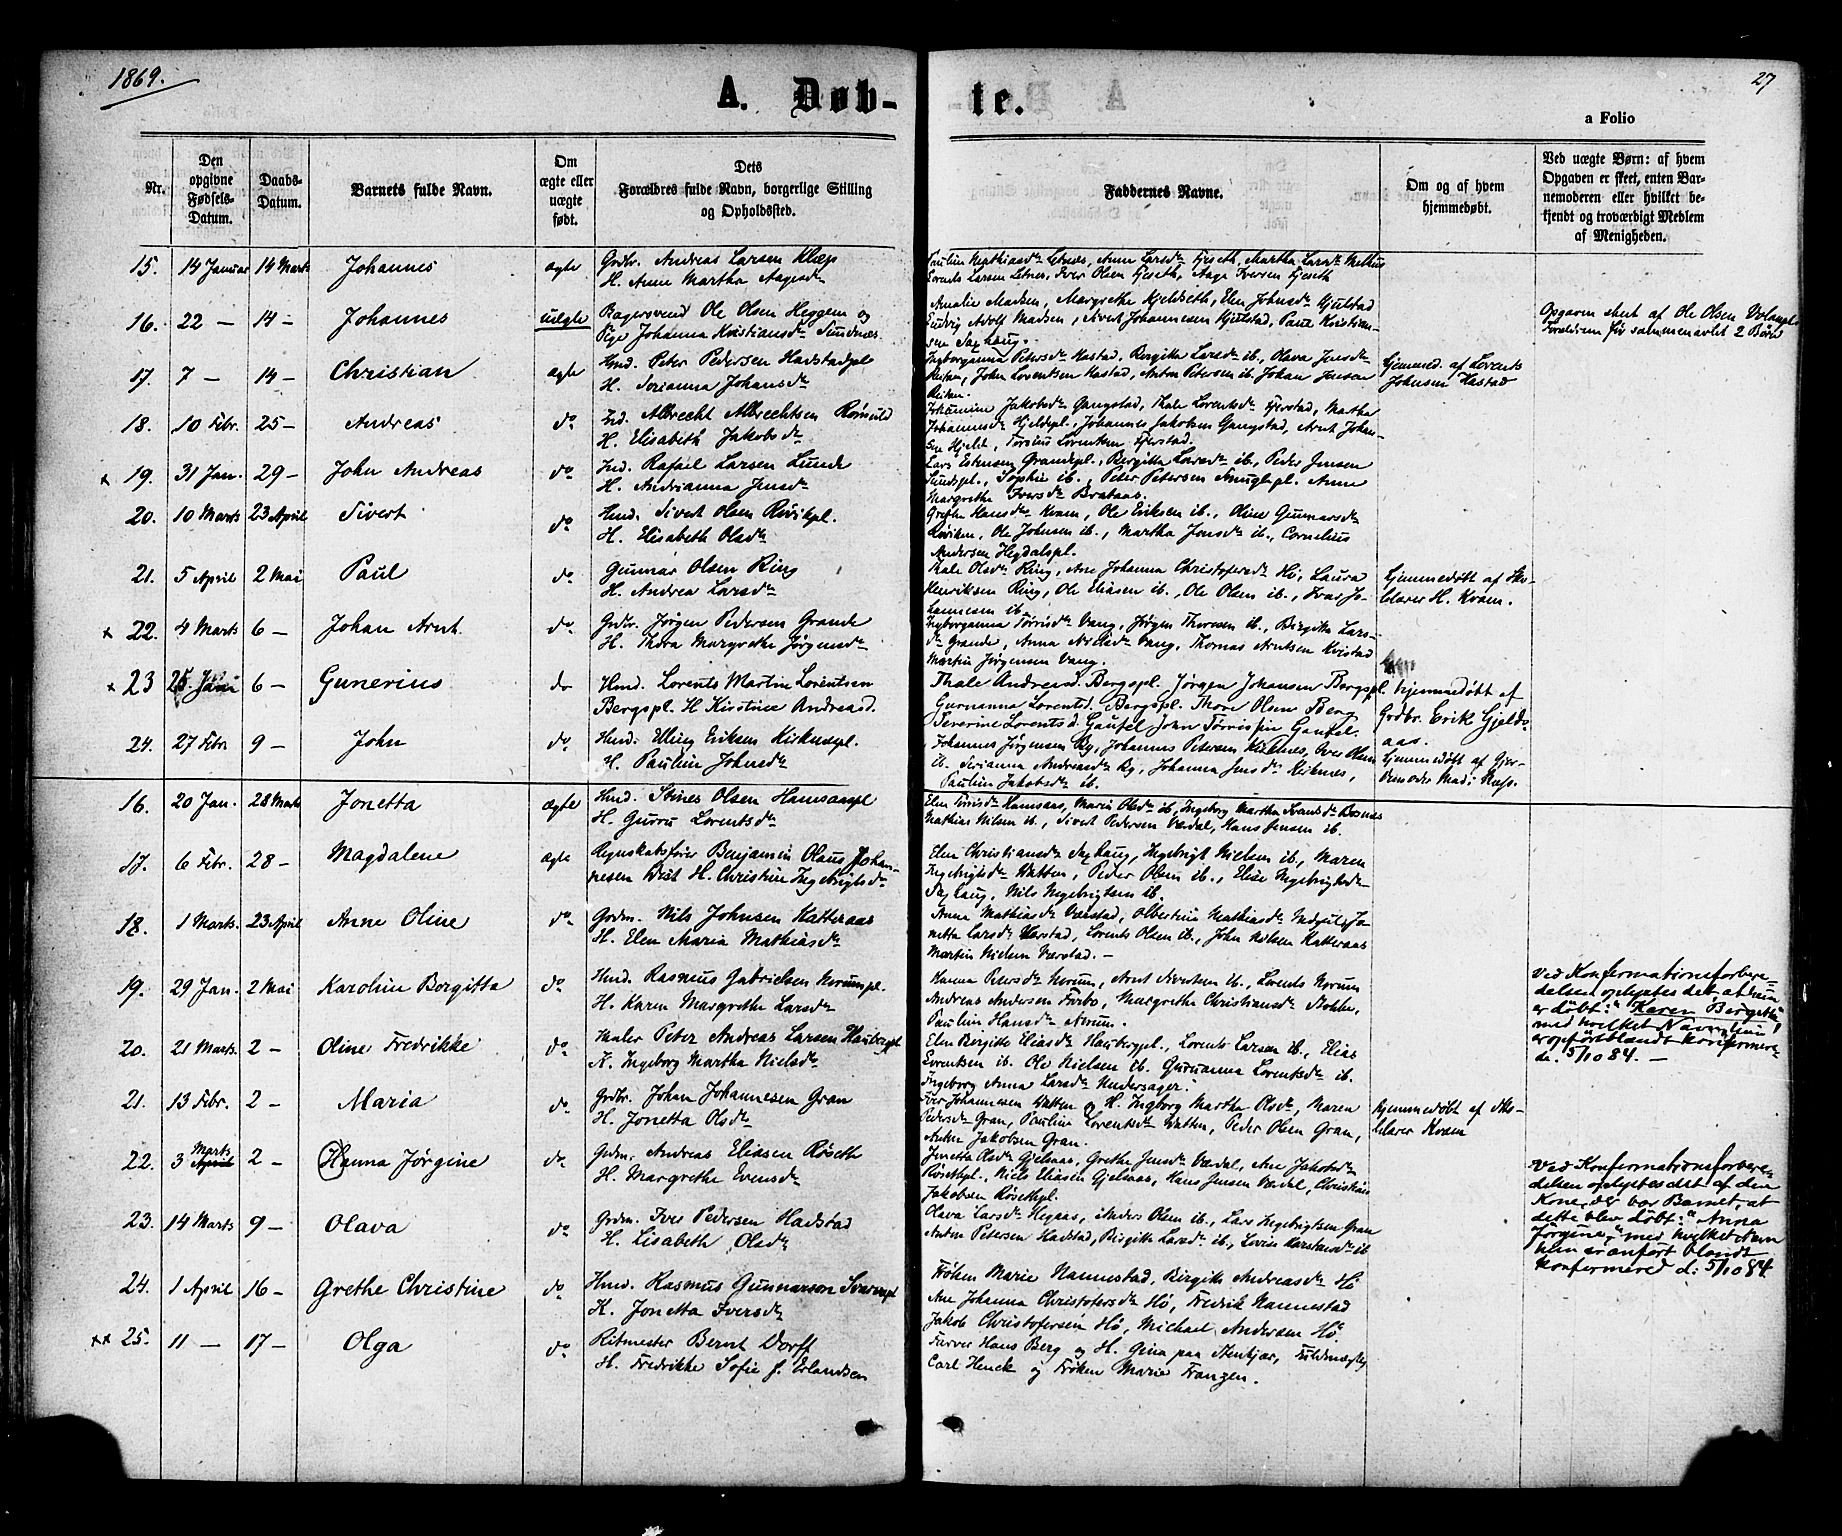 1869.
27
A. Døb-
te.
a Folio
Nr.
Den opgivne Fødsels-Datum.
Daabs-Datum.
Barnets fulde Navn.
Om ægte eller uægte født.
Dets Forældres fulde Navn, borgerlige Stilling og Opholdssted.
Faddernes Navne.
Om og af hvem hjemmedøbt.
Ved uægte Børn: af hvem Opgaven er skeet, enten Barnemoderen eller hvilket bekjendt og troværdigt Medlem af Menigheden.
15. 14 Januar 14 Marts Johannes ægte Grdbr. Andreas Larsen Klæp
H. Anne Martha Aagesdr
Lorents Larsen Letnes, Iver Olsen Fjeseth, Aage Iversen Fjeseth
16. 22 — 14 — Johannes uægte Bagersvend Ole Olsen Heggem og
Pige Johanna Kristiansdr Sundnæs
Amalie Madsen, Margrethe Kjeldseth, Elen Johnsdr Hjulstad
Ludvig Adolf Madsen, Sivert Johannesen Hjulstad, Paul Kristian-
sen Saxhaug.
Opgaven skeet af Ole Olsen
Forældrene før sammenavlet 2 Børn
17. 7 — 14 — Christian ægte Hmd. Peter Pedersen Hadstadpl
H. Serianna Johansdr
Ingboranna Petersdr Hastad, Bergitta Larsdr ib., Olava Jensdr
John Lorentsen Hastad, Anton Petersen ib. Johan Jensen
Hjemmed. af Lorents
Johnsen Hastad
18. 10 Febr. 25 — Andreas do Ind. Albrecht Albrechtsen Rømuld
H. Elisabeth Jakobsdr
Johannine Jakobsdr Gangstad, Thale Lorentsdr Fjerstad, Martha
Johannesdr Hjeldepl., Johannes Jakobsen Gangstad, Arnt Johan-
sen Hjeldt, Lorentsen Fjerstad.
x 19. 31 Jan. 29 — John Andreas do Ind. Rafael Larsen Lunde
H. Andrianna Jensdr
Lars Estensen Grandepl., Bergitta Larsdr ib., Peder Jensen
Sundspl., Sophie ib., Peter Petersen pl. Anne
Margrethe Iversdr Brataas.
20. 10 Marts 23 April Sivert do Hmd. Sivert Olsen Røvikpl.
H. Elisabeth Olsdr
Grethe Hansdr Kvam, Ole Eriksen ib., Oline Gunnarsdr
Røviken, Ole Johnsen ib., Martha Jensdr ib., Cornelius
Andersen Hegdalspl.
21. 5 April 2 Mai Paul do Gunnar Olsen Ring
H. Andrea Larsdr
Thale Olsdr Ring, Ane Johanna Christofersdr Hö, Laura
Henriksen Ring, Ole Eliasen ib., Ole Olsen ib., Ivar Jo-
hannesen ib.
Hjemmedøbt af Sko-
lelærer H. Kvam.
x 22. 4 Marts 6 — Johan Arnt. do Grdbr. Jørgen Pedersen Grande
H. Thora Margrethe Jørgensdr
Ingboranna Vang, Jørgen Thoresen ib., Birgitte Lars-
dr Grande, Anna Vang, Thomas Arntsen Kvistad
Martin Jørgensen Vang.
x 23 25. 6 — Gunerius do Hmd. Lorents Martin Lorentsen
Bergspl. H Kirstine Andreasd.
Thale Andreasd. Bergspl. Jørgen Johansen Bergspl.
Gurnanna Lorentsd. Bergspl. Thore Olsen Berg
Severine Lorentsd. Gausel John
Hjemmedøbt af
Grdbr. Erik Gjelds-
aas.
24. 27 Febr 9 — John do Hmd. Elling Eriksen Kirknespl.
H. Pauline Johnsdr
Johannes Jørgensen By, Johannes Petersen Kirknes, Iver Olsen
ib. Serianna Andreasdr By, Johanna Jensdr Kirknes,
Pauline Jakobsdr ib.
Hjemmedøbt af Gjor-
demoder Mad:
16. 20 Jan. 28 Marts Jonetta ægte Hmd. Olsen Hamsaaspl
H. Gurru Lorentsdr
Hamsaas, Maria Olsdr ib, Ingeborg Martha
Mathias Nilsen ib., Sivert Pedersen Værdal, Hans Jensen ib.
17. 6 Febr. 28 — Magdalene ægte Regnskabsfører Benjamin Olaus Johan-
nesen West H. Christine Ingebrigtsdr
Elen Christiansdr Saxhaug, Ingebrigt Nielsen ib., Maren
Ingebrigtsdr Watten, Peder Olsen ib., Elise Ingebrigtsdr
Saxhaug, Nils Ingebrigtsen ib.
18. 1 Marts. 23 April Anne Oline do Grdm. Nils Johnsen Katteraas
H. Elen Maria Mathiasdr
Anna Mathiasdr Værstad, Olbertina Mathiasdr Jo-
netta Larsdr Værstad, Lorents Olsen ib., John Nilsen Katteraas
Martin Nielsen Værstad. —
19. 29 Jan. 2 Mai Karoline Bergitta do Hmd. Rasmus Gabrielsen Norumpl.
H. Karen Margrethe Larsdr
Hanna Petersdr Norum, Arnt Sivertsen ib., Lorents Norum
Andreas Andersen Forbo, Margrethe Christiansdr Stokke,
Pauline Hansdr Norum.
Ved Konfirmationsforbere-
delsen oplystes det, at hun
er döbt: "Karen Bergitta"
med hvilket Navn hun
er opført blandt konfirmere-
de. 5/10 84. —
20. 21 Marts. 2 — Oline Fredrikke do Maler Peter Andreas Larsen Haubergpl
H. Ingeborg Martha Nielsdr
Elen Birgitte Eliasdr Haubergpl., Lorents Larsen ib., Elias
Lorentsen ib. Ole Nielsen ib. Gurianna Lorentsdr ib.
Ingeborg Anna Larsdr Undersager.
21. 13 Febr. 2 — Maria do Grdbr. Johan Johannesen Gran
H. Jonetta Olsdr
Iver Johannesen Watten og H. Ingborg Martha Olsdr, Maren
Pedersdr Gran, Pauline Lorentsdr Watten, Peder Olsen Gran,
Anton Jakobsen Gran.
Hjemmedøbt af Sko-
lelærer Kvam
22. 3 Marts April 2 — Hanna Jørgine do Grdm. Andreas Eliasen Røseth
H. Margrethe Evensdr
Jonetta Olsdr Gjelsaas, Grethe Jensdr Værdal, Ane Jakobsdr
Røsethpl., Niels Eliasen Gjelsaas, Hans Jensen Værdal, Christian
Jakobsen Røsethpl.
Ved Konfirmationsforbere-
delsen oplystes det af den
Kone, der bar Barnet, at
dette blev döbt: "Anna
Jörgine," med hvilket Navn
hun er anført blandt
Konfirmered d: 5/10 84.
23. 14 Marts 9 — Olava do Grdm. Iver Pedersen Hadstad
H. Lisabeth Olsdr
Olava Larsdr Hegaas, Anders Olsen ib., Lars Ingebrigtsen Gran
Anton Petersen Hadstad, Birgitte Larsdr ib., Lovise ib
24. 1 April 16 — Grethe Christine do Hmd. Rasmus Gunnarson
K. Jonetta Iversdr
Frøken Marie Nannestad, Birgitte Andreasdr Hö
Ane Johanna Christofersdr Hö, Fredrik Nannestad
Jakob Christofersen Hö, Michael Andersen Hö.
xx 25. 11 — 17 — Olga do Ritmester Bernt Dorff
H. Fredrikke Sofie f. Erlandsen
Farver Hans Berg og H. Gina paa Stenkjær, Fuldmægtig
Carl Henck og Frøken Marie Franzen.